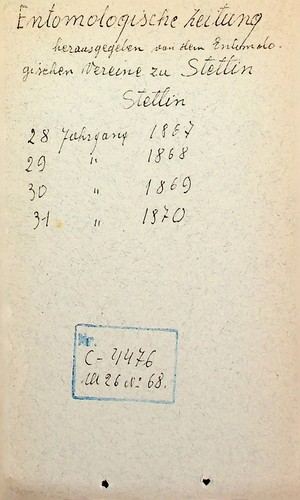 Entomologische Zeitung
herausgegeben von dem Entomolo-
gischen Vereine zu Stettin
Stettin
28 Jahrgang 1867
29 " 1868
30 " 1869
31 " 1870
Nr.
C-4476
26 № 68.